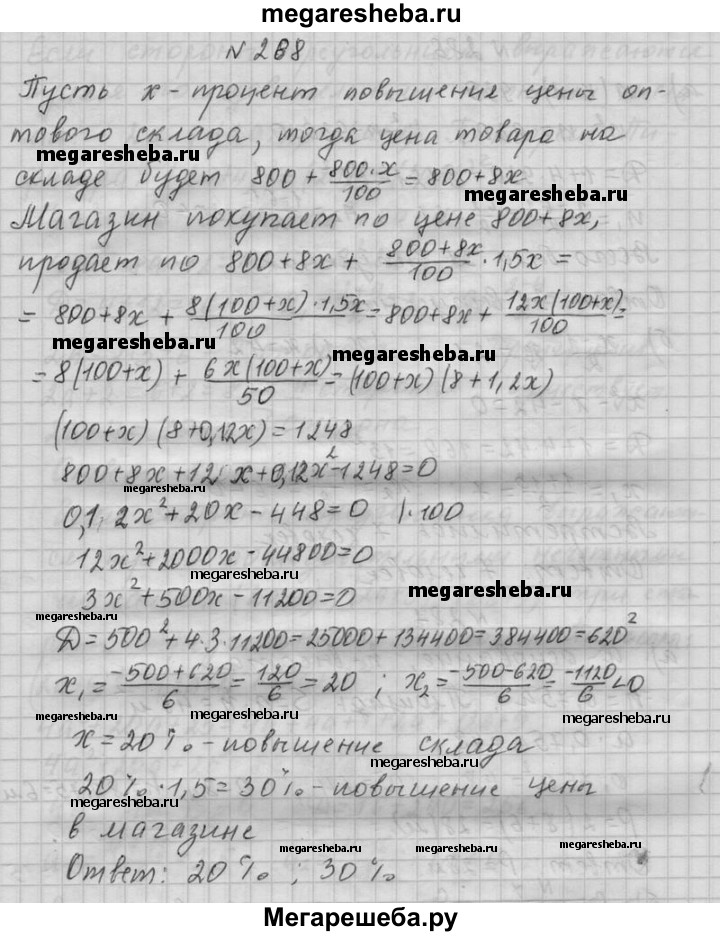 megaresheba.ru
N 288
Пусть x - процент повышение цены оп-
тового склада, тогда цена товара на
megaresheba.ru
складе будет 800 + 800·x/100 = 800+8x
megaresheba.ru
Магазин покупает по цене 800+8x,
продает по 800+8x + 800+8x/100 · 1,5x =
= 800+8x + 8(100+x)·1,5x/100 = 800+8x + 12x(100+x)/100 =
megaresheba.ru megaresheba.ru
= 8(100+x) + 6x(100+x)/50 = (100+x)(8+1,2x)
(100+x)(8+0,12x) = 1248
800+8x+12x+0,12x²-1248=0
megaresheba.ru
0,12x²+20x-448=0 |·100
12x²+2000x-44800=0
megaresheba.ru
3x²+500x-11200=0
megaresheba.ru
megaresheba.ru
Д=500²+4·3·11200=25000+134400=384400=620²
megaresheba.ru
x₁=-500+620/6=120/6=20 ; x₂=-500-620/6=-1120/6<0
megaresheba.ru megaresheba.ru megaresheba.ru
x=20% - повышение склада
20%·1,5=30% - повышение цены
megaresheba.ru
в магазине
megaresheba.ru megaresheba.ru megaresheba.ru
Ответ: 20% ; 30%
Мегарешеба.ру